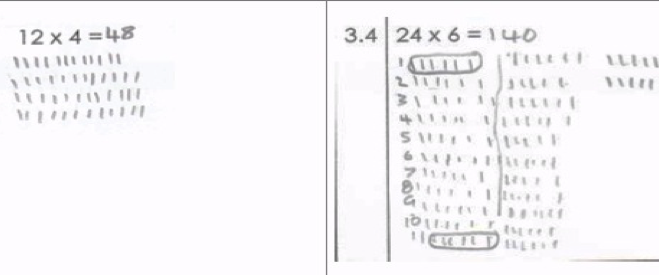 12 x 4 = 48
3.4 24 x 6 = 140
1
2
3
4
5
6
7
8
9
10
11